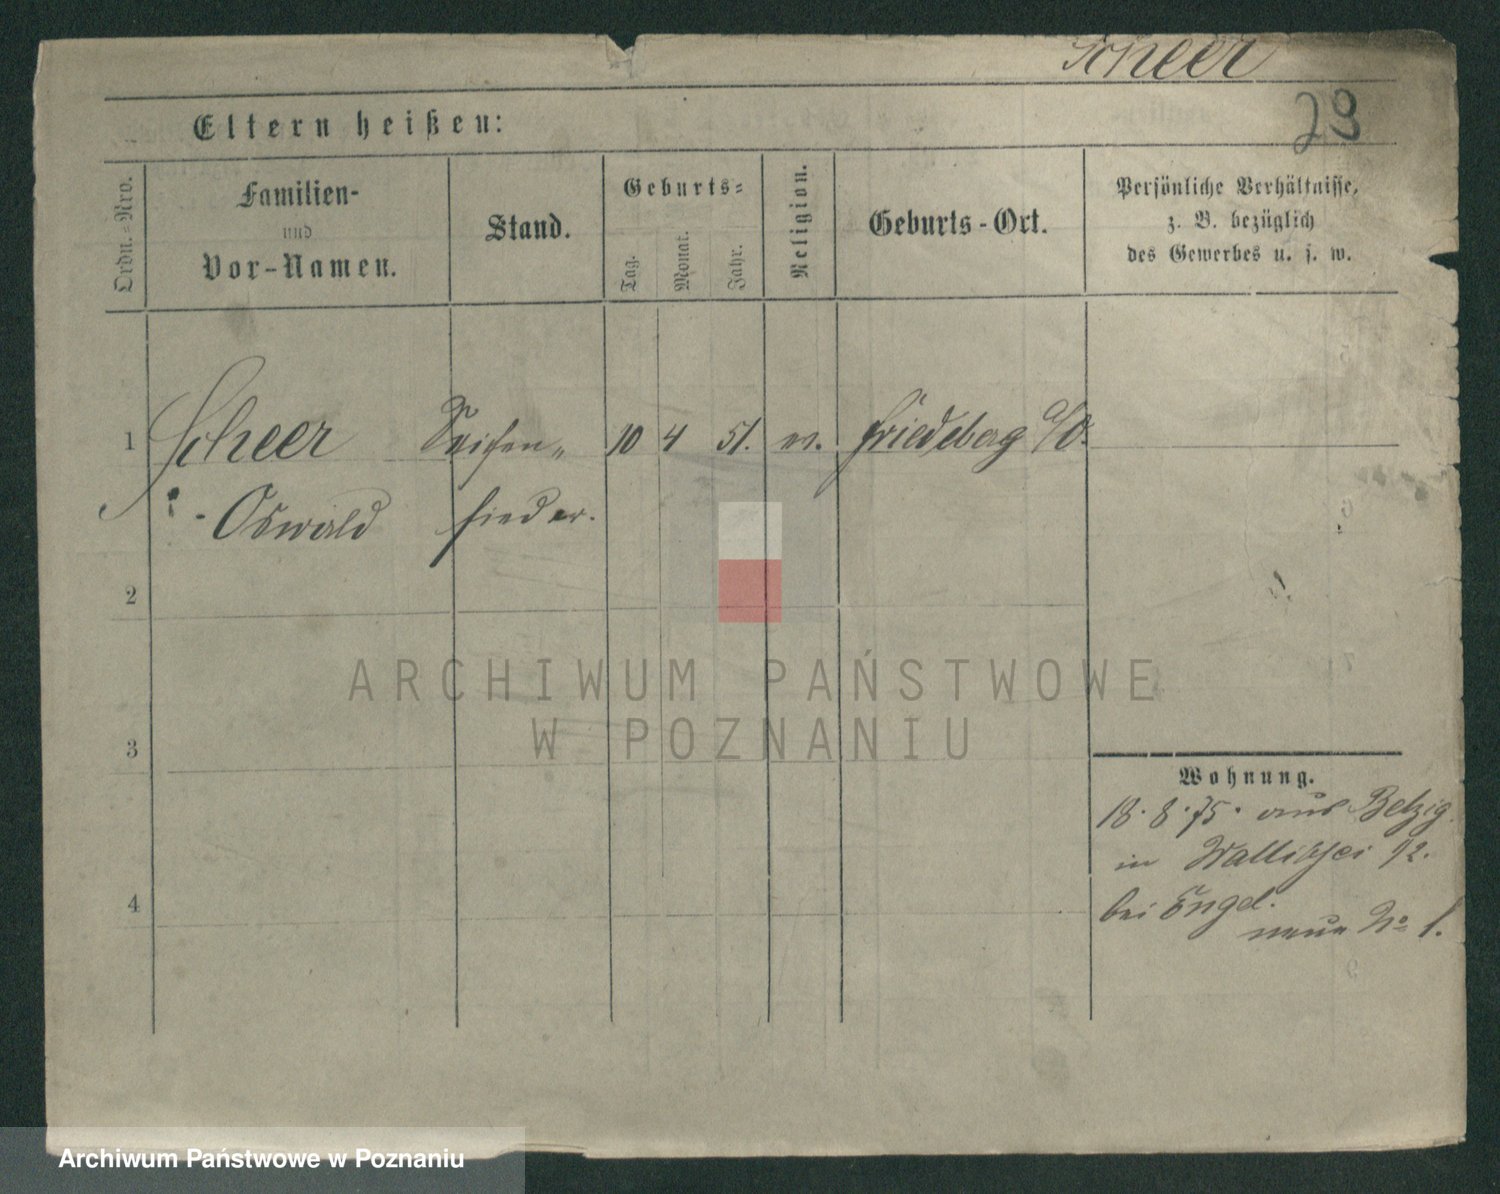 Scheer
29
Eltern heißen:
Ordn.-Nro.
Familien-
und
Vor-Namen.
Stand.
Geburts-
Tag.
Monat.
Jahr.
Religion.
Geburts-Ort.
Persönliche Verhältnisse,
z. B. bezüglich
des Gewerbes u. s. w.
1 Scheer Seifen- 10 4 51. ev. Friedeberg a/O.
- Oswald sieder.
2
3
4
Wohnung.
18.8.75. aus Belzig
in Wallischei 12.
bei Engel.
neue No 1.
ARCHIWUM PAŃSTWOWE
W POZNANIU
Archiwum Państwowe w Poznaniu